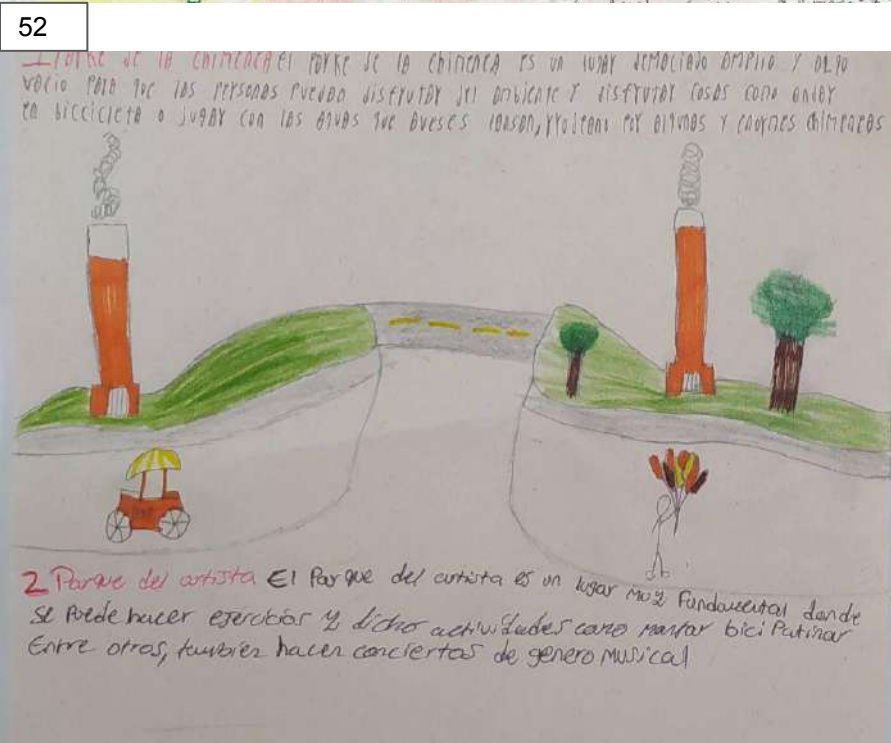 52
1 Parke de la chimenea el parke de la chimenea es un lugar demaciado amplio y algo
vacio para que las personas puedan disfrutar del ambiente y disfrutar cosas como andar
en biccicleta o jugar con las que aveses por algunas y enormes chimeneas
2 Parque del artista El Parque del artista es un lugar muy Fundamental donde
se Puede hacer ejercicios y dicho actividades como montar bici Patinar
Entre otros, tambien hacen conciertos de genero musical